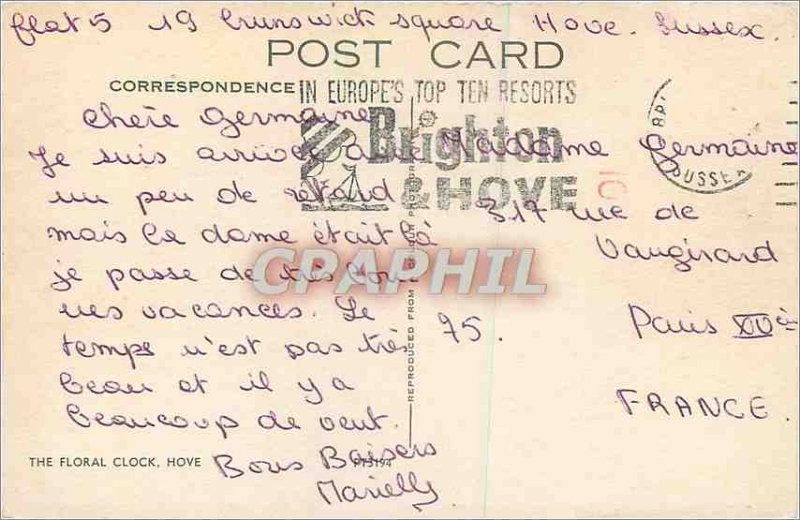 flat 5 19 Brunswick square Hove. Sussex.
POST CARD
CORRESPONDENCE
IN EUROPE'S TOP TEN RESORTS
Brighton
& HOVE
SUSSEX
chère Germaine
Je suis arrivée avec
un peu de retard
mais la dame était là
je passe de très
mes vacances. Le
temps n'est pas très
beau et il y a
beaucoup de vent.
Bons Baisers
Marielly
Madame Germaine
317 rue de
Vaugirard
75.
Paris XVè
FRANCE.
REPRODUCED FROM
THE FLORAL CLOCK, HOVE
PT3194
CPAPHIL